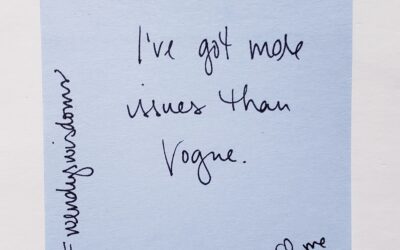 I've got more
issues than
Vogue.
#wendyswisdoms
me